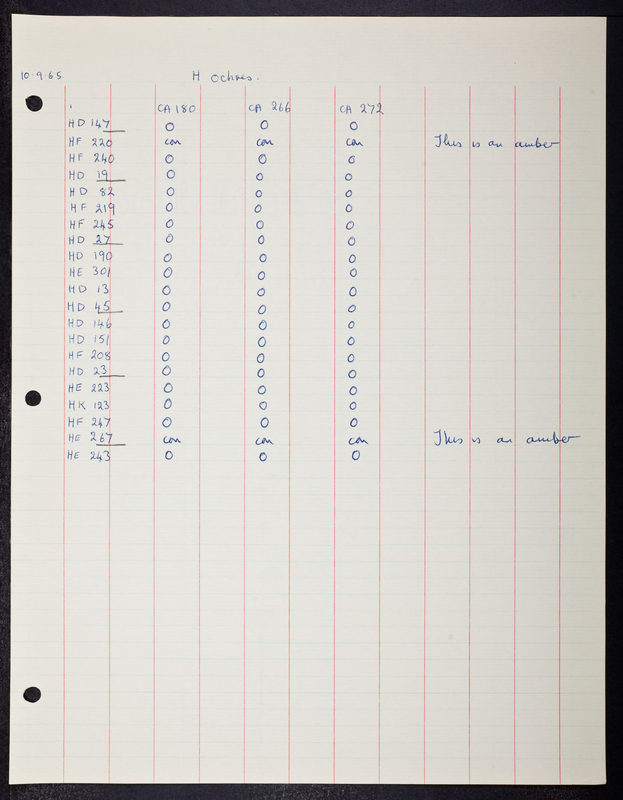 10.9.65 H ochres.
CA 180 CA 266 CA 272
HD 147 O O O
HF 220 con con con This is an amber
HF 240 O O O
HD 19 O O O
HD 82 O O O
HF 219 O O O
HF 245 O O O
HD 27 O O O
HD 190 O O O
HE 301 O O O
HD 13 O O O
HD 45 O O O
HD 146 O O O
HD 151 O O O
HF 208 O O O
HD 23 O O O
HE 223 O O O
HK 123 O O O
HF 247 O O O
HE 267 con con con This is an amber
HE 243 O O O